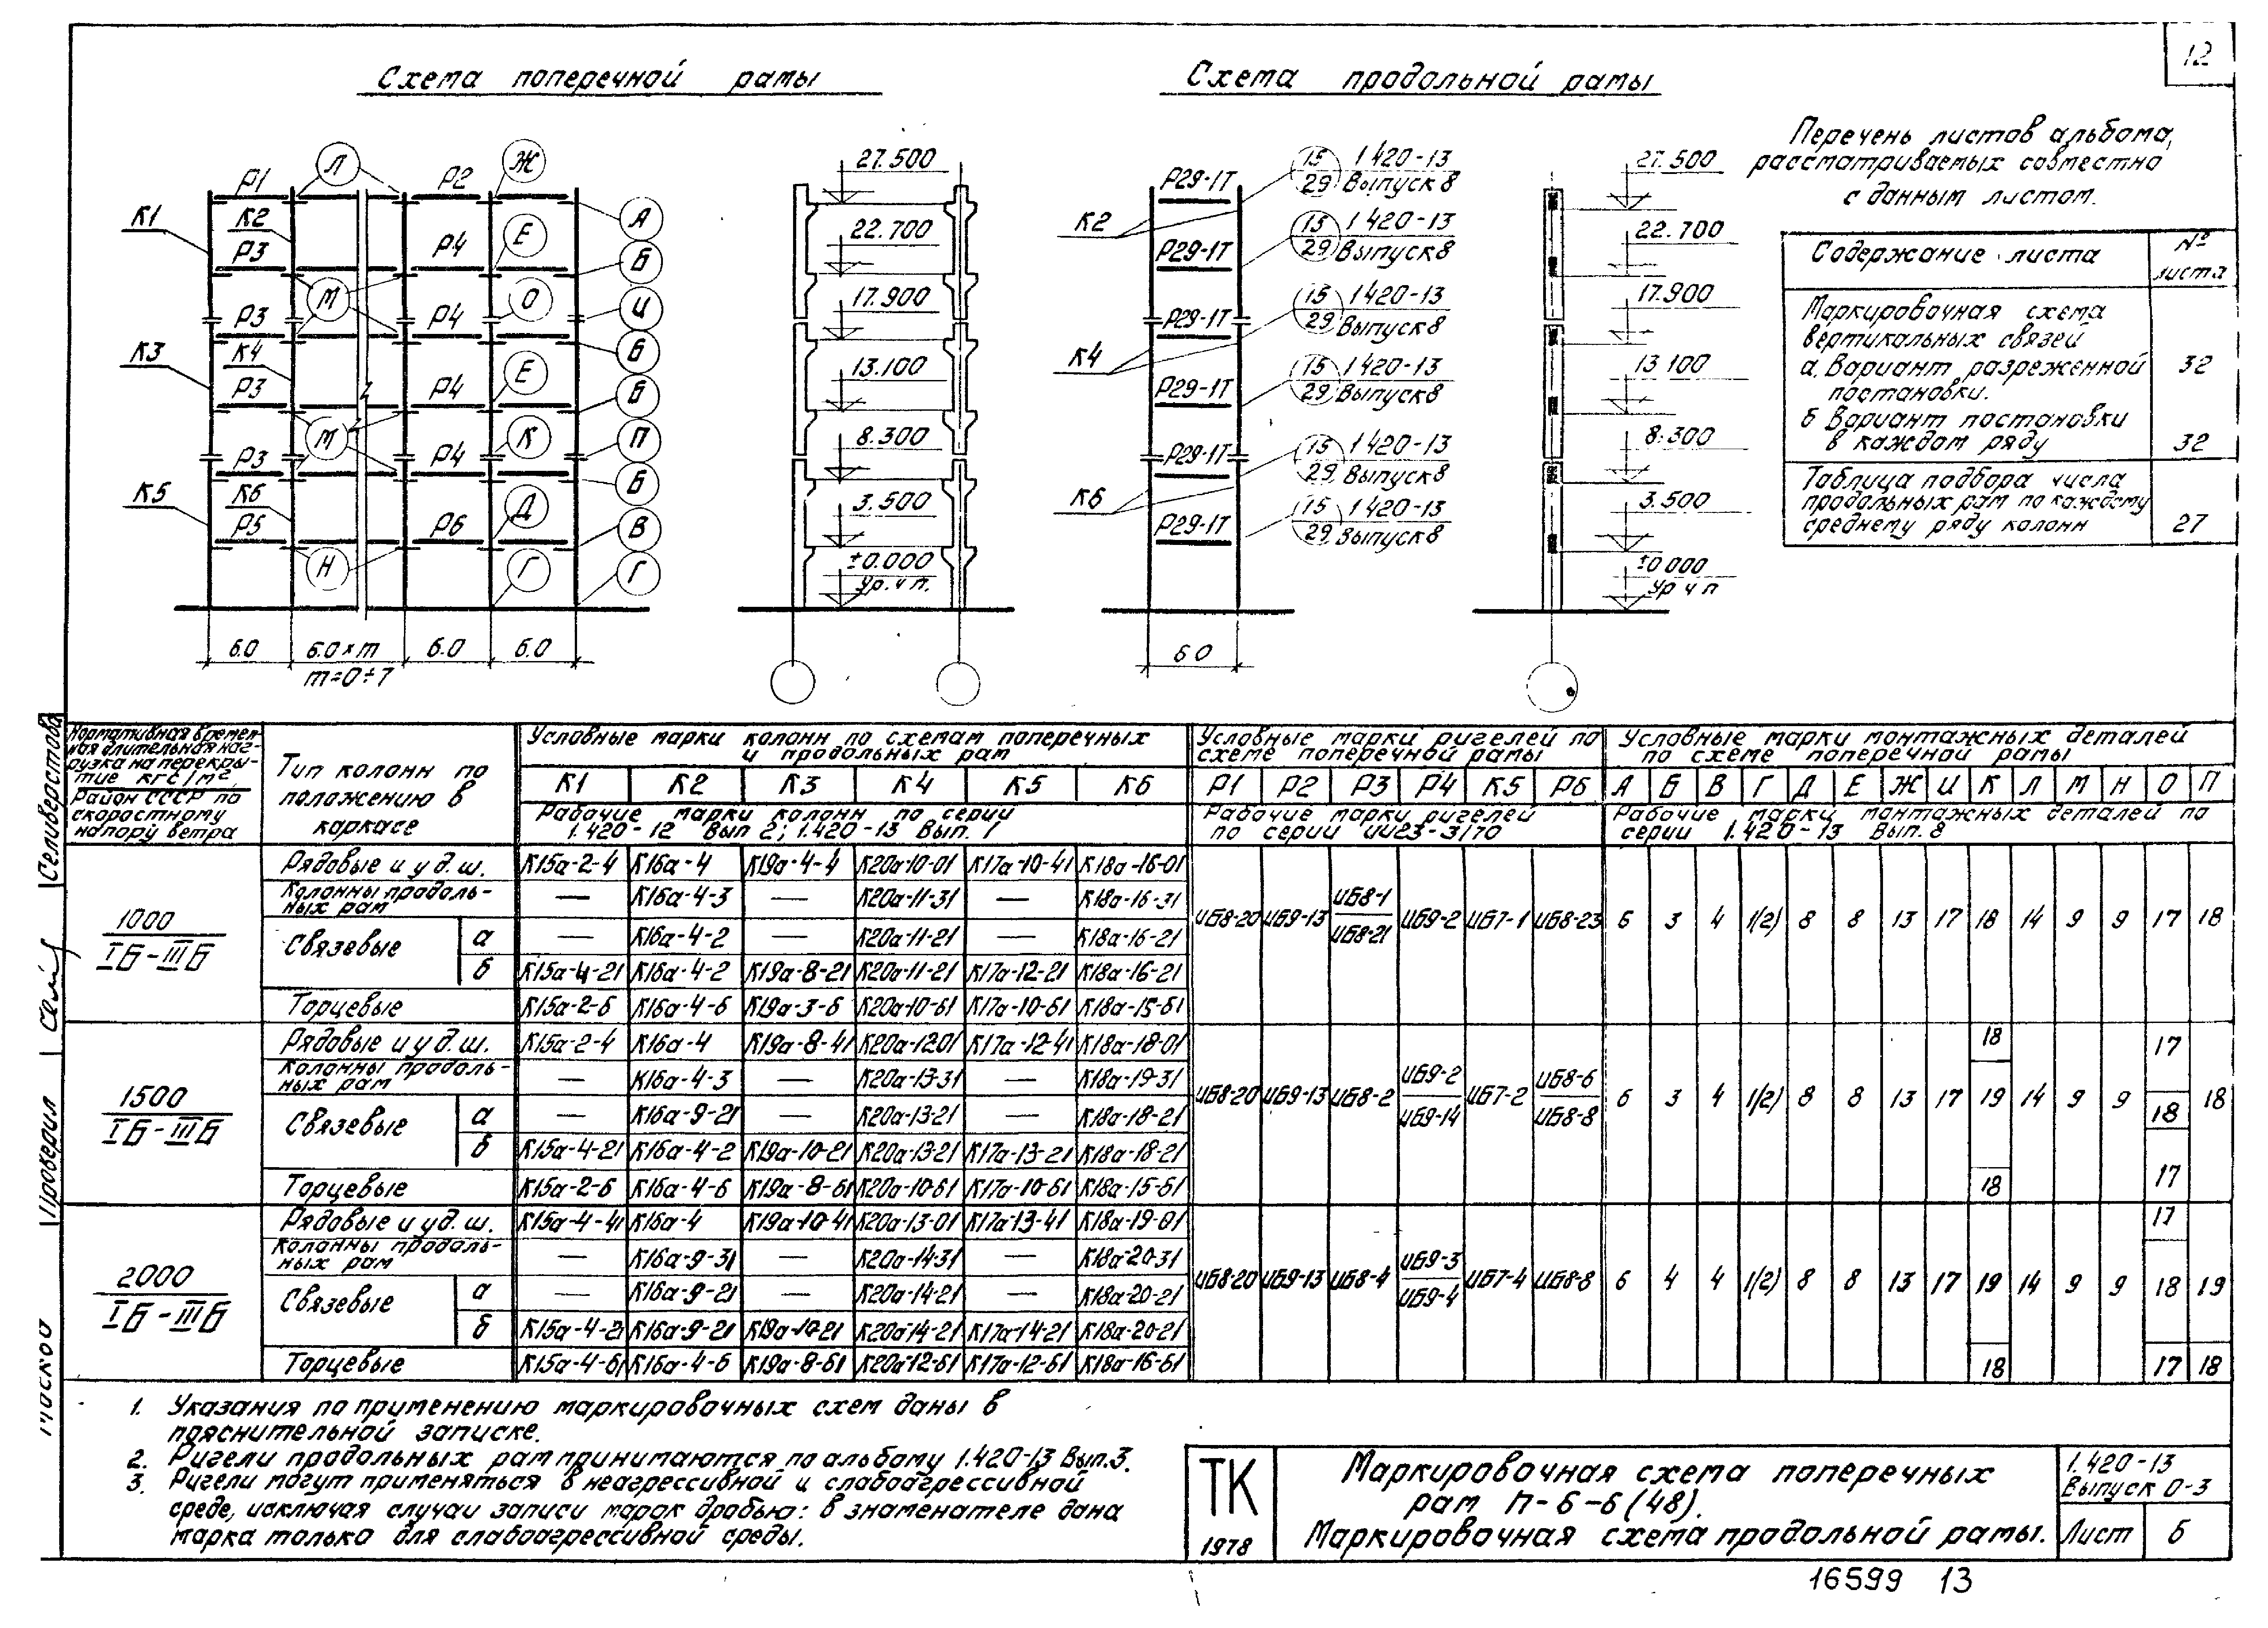 12
Схема поперечной рамы
Схема продольной рамы
Р1 Л Р2 Ж
К1 К2 А
Р3 Р4 Е Б
М О И
Р3 Р4 Б
К3 К4 Е
Р3 Р4 Б
М К П
Р3 Р4 Б
К5 К6 Д
Р5 Р6 В
Н Г Г
6.0 6.0×m 6.0 6.0
m=0÷7
27.500
22.700
17.900
13.100
8.300
3.500
±0.000
Ур.ч.п.
Р29-1Т 15 1420-13
29 Выпуск 8
К2
Р29-1Т 15 1420-13
29 Выпуск 8
Р29-1Т 15 1420-13
29 Выпуск 8
К4
Р29-1Т 15 1420-13
29 Выпуск 8
Р29-1Т 15 1420-13
29 Выпуск 8
К6
Р29-1Т 15 1420-13
29 Выпуск 8
60
27.500
22.700
17.900
13 100
8.300
3.500
±0 000
Ур ч п
Перечень листов альбома,
рассматриваемых совместно
с данным листом.
Содержание листа № листа
Маркировочная схема
вертикальных связей
а. Вариант разреженной 32
постановки.
б Вариант постановки
в каждом ряду 32
Таблица подбора числа
продольных рам по каждому
среднему ряду колонн 27
Нормативная времен-
ная длительная наг-
рузка на перекры-
тие кгс/м²
Район СССР по
скоростному
напору ветра
Тип колонн по
положению в
каркасе
Условные марки колонн по схемам поперечных
и продольных рам
К1 К2 К3 К4 К5 К6
Рабочие марки колонн по серии
1.420-12 Вып 2; 1.420-13 Вып. 1
Условные марки ригелей по
схеме поперечной рамы
Р1 Р2 Р3 Р4 К5 Р6
Рабочие марки ригелей
по серии ИИ23-3/70
Условные марки монтажных деталей
по схеме поперечной рамы
А Б В Г Д Е Ж И К Л М Н О П
Рабочие марки монтажных деталей по
серии 1.420-13 Вып. 8
1000
IБ-IIIБ
Рядовые и у д.ш. К15а-2-4 К16а-4 К19а-4-4 К20а-10-01 К17а-10-41 К18а-16-01
Колонны продоль-
ных рам — К16а-4-3 — К20а-11-31 — К18а-16-31
Связевые а — К16а-4-2 — К20а-11-21 — К18а-16-21
б К15а-4-21 К16а-4-2 К19а-8-21 К20а-11-21 К17а-12-21 К18а-16-21
Торцевые К15а-2-6 К16а-4-6 К19а-3-6 К20а-10-61 К17а-10-61 К18а-15-61
ИБ8-20 ИБ9-13 ИБ8-1 ИБ8-21 ИБ9-2 ИБ7-1 ИБ8-23 6 3 4 1(2) 8 8 13 17 18 14 9 9 17 18
1500
IБ-IIIБ
Рядовые и у д.ш. К15а-2-4 К16а-4 К19а-8-41 К20а-12-01 К17а-12-41 К18а-18-01
Колонны продоль-
ных рам — К16а-4-3 — К20а-13-31 — К18а-19-31
Связевые а — К16а-9-21 — К20а-13-21 — К18а-18-21
б К15а-4-21 К16а-4-2 К19а-10-21 К20а-13-21 К17а-13-21 К18а-18-21
Торцевые К15а-2-6 К16а-4-6 К19а-8-61 К20а-10-61 К17а-10-61 К18а-15-61
ИБ8-20 ИБ9-13 ИБ8-2 ИБ9-2 ИБ9-14 ИБ7-2 ИБ8-6 ИБ8-8 6 3 4 1(2) 8 8 13 17 18 19 18 14 9 9 17 18 17 18
2000
IБ-IIIБ
Рядовые и у д.ш. К15а-4-41 К16а-4 К19а-10-41 К20а-13-01 К17а-13-41 К18а-19-01
Колонны продоль-
ных рам — К16а-9-31 — К20а-14-31 — К18а-20-31
Связевые а — К16а-9-21 — К20а-14-21 — К18а-20-21
б К15а-4-21 К16а-9-21 К19а-10-21 К20а-14-21 К17а-14-21 К18а-20-21
Торцевые К15а-4-61 К16а-4-6 К19а-8-61 К20а-12-61 К17а-12-61 К18а-16-61
ИБ8-20 ИБ9-13 ИБ8-4 ИБ9-3 ИБ9-4 ИБ7-4 ИБ8-8 6 4 4 1(2) 8 8 13 17 19 18 14 9 9 17 18 17 19 18
1. Указания по применению маркировочных схем даны в
пояснительной записке.
2. Ригели продольных рам принимаются по альбому 1.420-13 Вып.3.
3. Ригели могут применяться в неагрессивной и слабоагрессивной
среде, исключая случаи записи марок дробью: в знаменателе дана
марка только для слабоагрессивной среды.
ТК
1978
Маркировочная схема поперечных
рам П-6-6(48).
Маркировочная схема продольной рамы.
1.420-13
Выпуск 0-3
Лист 6
16599 13
Проверил
Селиверстова